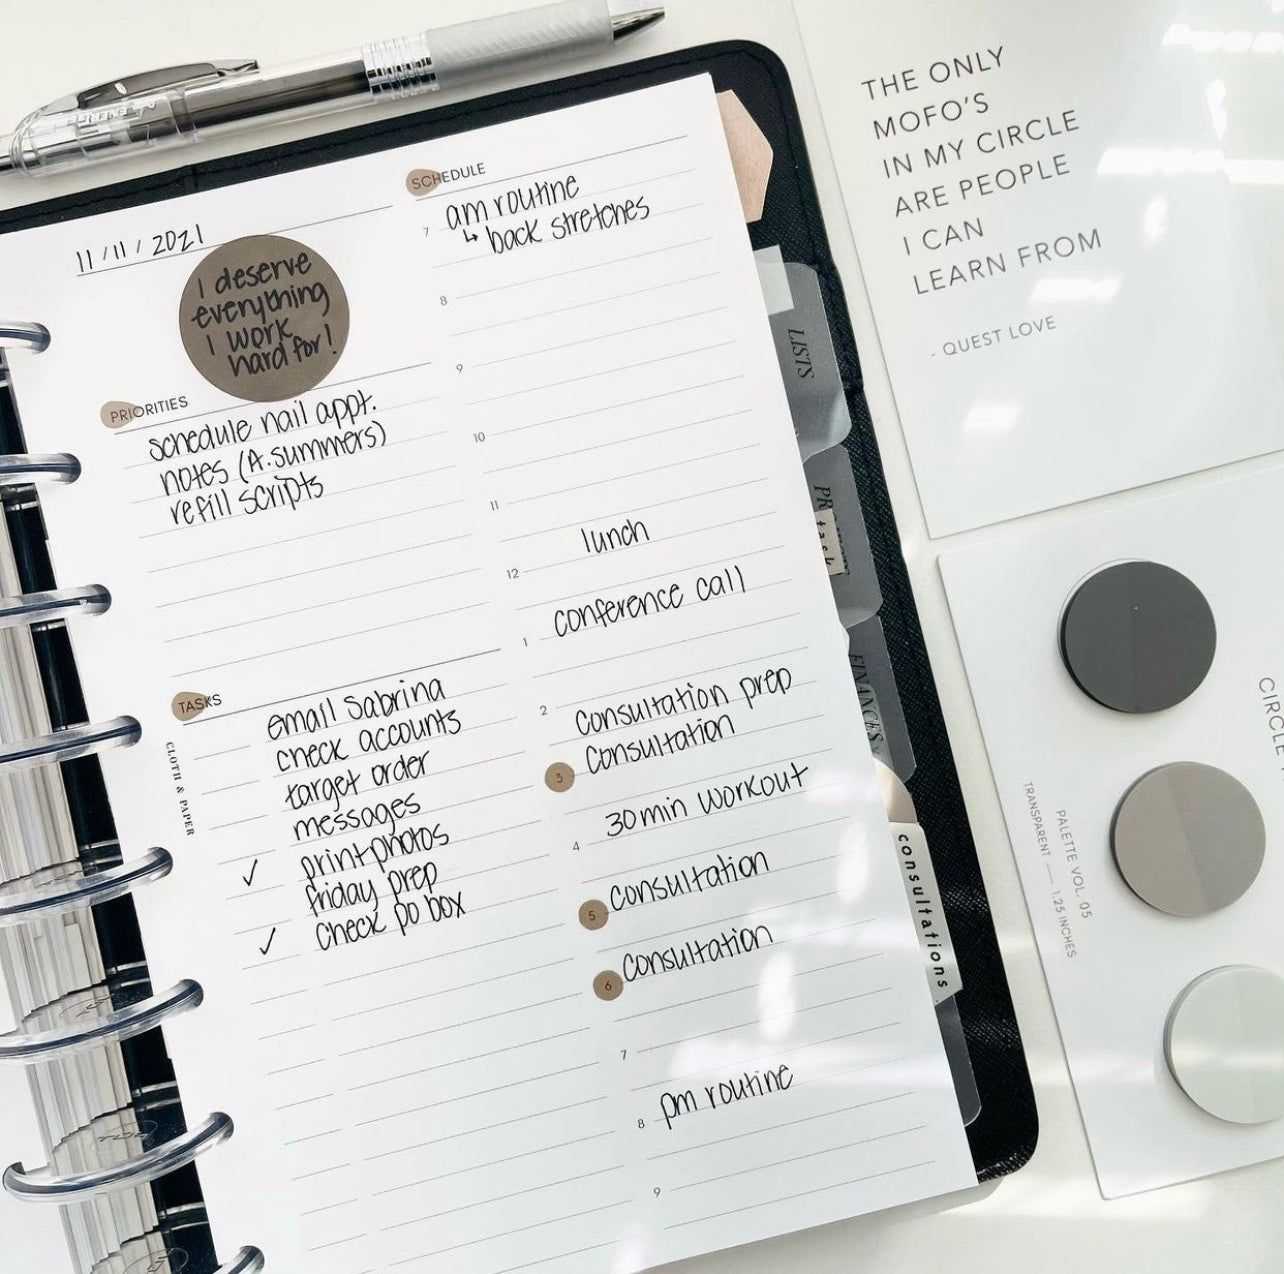 11/11/2021
I deserve
everything
I work
hard for!
PRIORITIES
schedule nail appt.
notes (A.summers)
refill scripts
TASKS
email Sabrina
check accounts
target order
messages
✓ print photos
friday prep
✓ check po box
CLOTH & PAPER
SCHEDULE
am routine
7 ↳ back stretches
8
9
10
11
lunch
12
conference call
1
2 Consultation prep
Consultation
3
30 min workout
4
Consultation
5
Consultation
6
7
pm routine
8
9
LISTS
task
FINANCES
consultations
THE ONLY
MOFO'S
IN MY CIRCLE
ARE PEOPLE
I CAN
LEARN FROM
- QUEST LOVE
PALETTE VOL. 05
TRANSPARENT — 1.25 INCHES